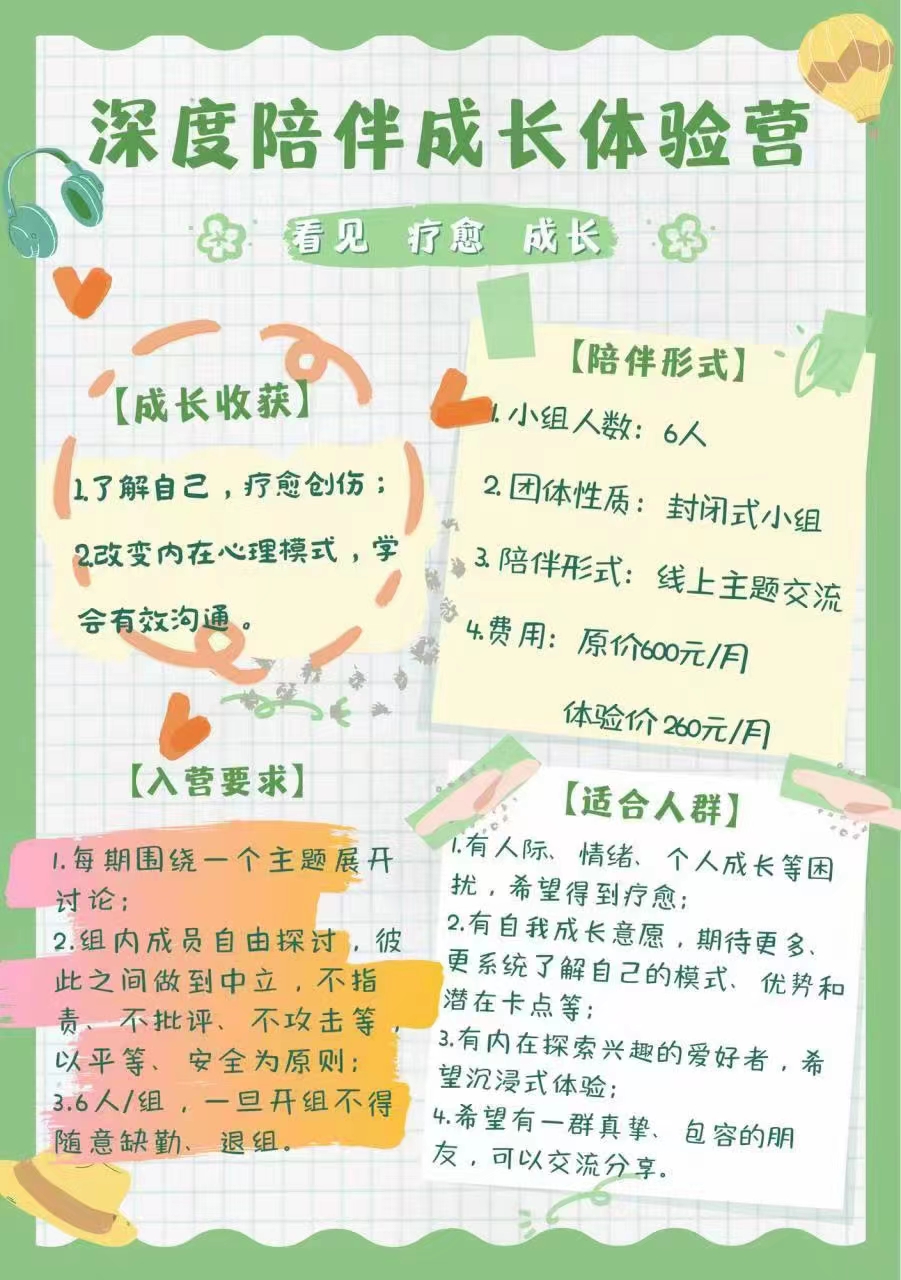 深度陪伴成长体验营
看见 疗愈 成长
【成长收获】
1.了解自己，疗愈创伤；
2.改变内在心理模式，学
会有效沟通。
【陪伴形式】
1. 小组人数：6人
2. 团体性质：封闭式小组
3. 陪伴形式：线上主题交流
4.费用：原价600元/月
体验价 260元/月
【入营要求】
1.每期围绕一个主题展开
讨论；
2.组内成员自由探讨，彼
此之间做到中立，不指
责、不批评、不攻击等，
以平等、安全为原则；
3.6人/组，一旦开组不得
随意缺勤、退组。
【适合人群】
1.有人际、情绪、个人成长等困
扰，希望得到疗愈；
2.有自我成长意愿，期待更多、
更系统了解自己的模式、优势和
潜在卡点等；
3.有内在探索兴趣的爱好者，希
望沉浸式体验；
4.希望有一群真挚、包容的朋
友，可以交流分享。